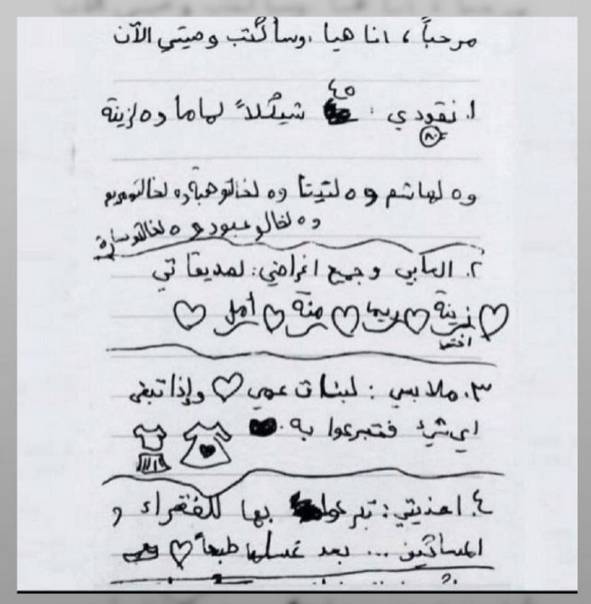 مرحباً، انا هيا. وسأكتب وصيتي الآن
٤٥
١. نقودي: شيكلاً لماما و٥ لزينة
٨٠
و٥ لهاشم و٥ لتيتا و٥ لخالتو هبة و٥ لخالتو مريم
و٥ لخالو عبود و٥ لخالتو سارة
٢. العابي وجميع اغراضي: لصديقاتي
زينة ♡ ريما ♡ منة ♡ أمل ♡
اختها
٣. ملابسي: لبنات عمي ♡ وإذا تبقى
اي شيء فتبرعوا به.
٤. احذيتي: تبرعوا بها للفقراء و
المساكين... بعد غسلها طبعاً ♡